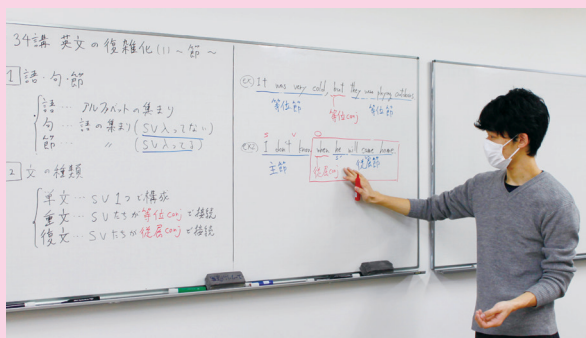 34講 英文の複雑化(1) ~ 節 ~
1 語・句・節
語… アルファベットの集まり
句… 語の集まり(SV入ってない)
節… 〃 (SV入ってる)
2 文の種類
単文… SV1つで構成
重文… SVたちが等位conjで接続
複文… SVたちが従属conjで接続
ex) It was very cold, but they were playing outdoors.
等位節 等位conj 等位節
ex2) I don't know when he will come home.
S V O
主節 従属conj 従属節